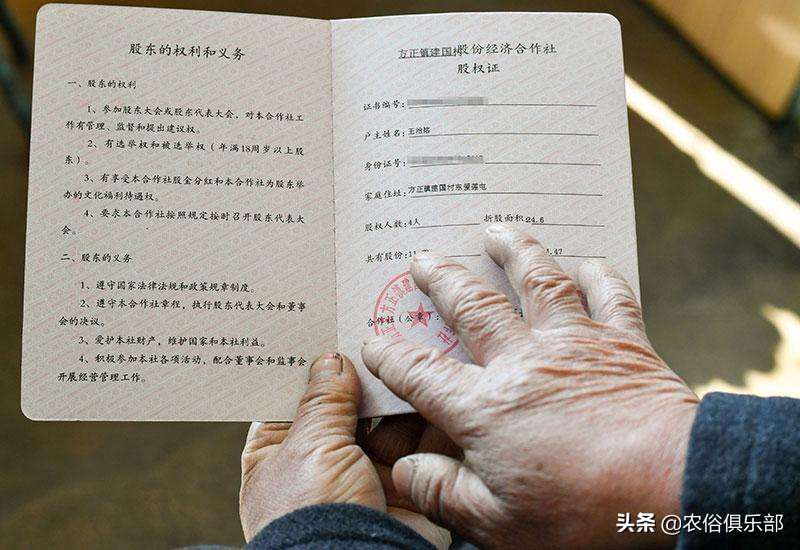 股东的权利和义务
一、股东的权利
1、参加股东大会或股东代表大会，对本合作社工
作有管理、监督和提出建议权。
2、有选举权和被选举权（年满18周岁以上股
东）。
3、有享受本合作社股金分红和本合作社为股东举
办的文化福利待遇权。
4、要求本合作社按照规定按时召开股东代表大
会。
二、股东的义务
1、遵守国家法律法规和政策规章制度。
2、遵守本合作社章程，执行股东代表大会和董事
会的决议。
3、爱护本社财产，维护国家和本社利益。
4、积极参加本社各项活动，配合董事会和监事会
开展经营管理工作。
方正镇建国村股份经济合作社
股权证
证书编号：
户主姓名：王
身份证号：
家庭住址：方正镇建国村东
股权人数：4人 折股面积：24.6
共有股份：11 .47
合作社（公章）：
头条 @农俗俱乐部